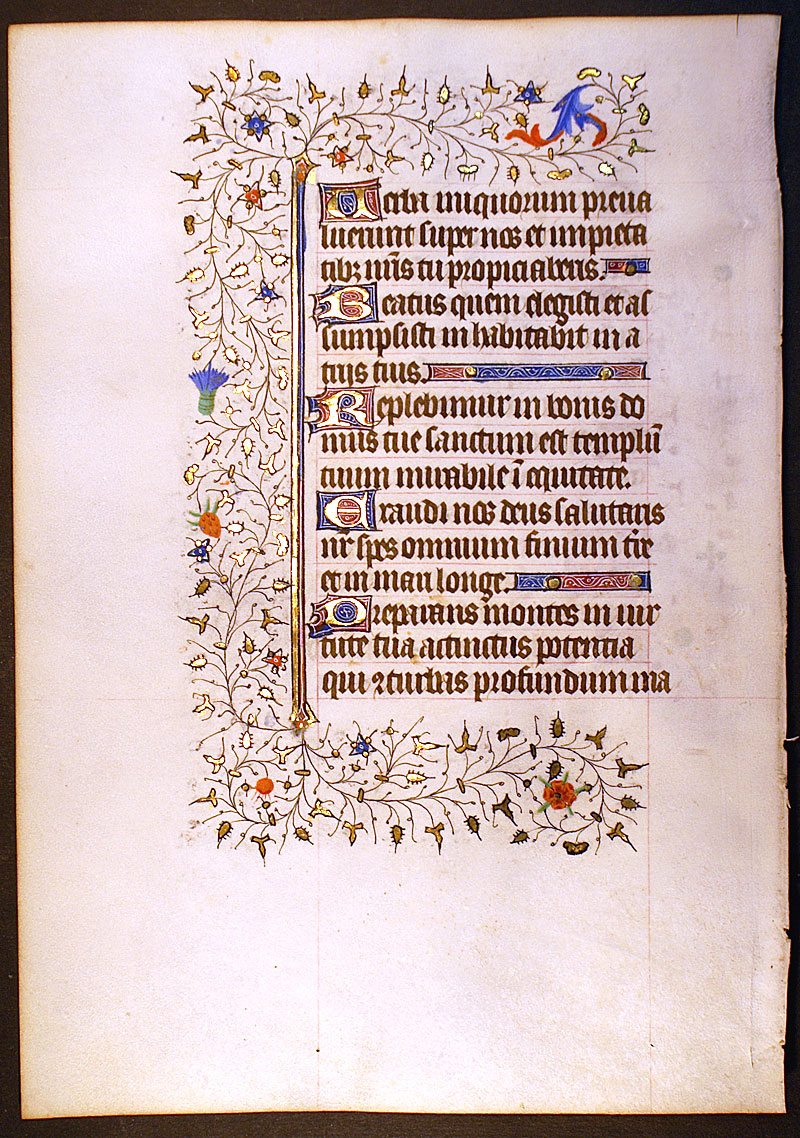 Uerba iniquorum preua
luerunt super nos et impieta
tibꝫ nr̄is tu propiciaberis.
Beatus quem elegisti et as
sumpsisti inhabitabit in a
triis tuis.
Replebimur in bonis do
mus tue sanctum est templū
tuum mirabile ī equitate.
Exaudi nos deus salutaris
nr̄ spes omnium finium tr̄e
et in mari longe.
Preparans montes in uir
tute tua accinctus potentia
qui ꝯturbas profundum ma